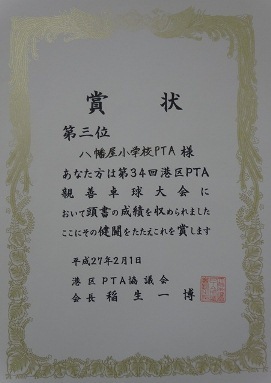 賞状
第三位
八幡屋小学校PTA 様
あなた方は第34回港区PTA
親善卓球大会に
おいて頭書の成績を収められました
ここにその健闘をたたえこれを賞します
平成27年2月1日
港区PTA協議会
会長 稲生一博